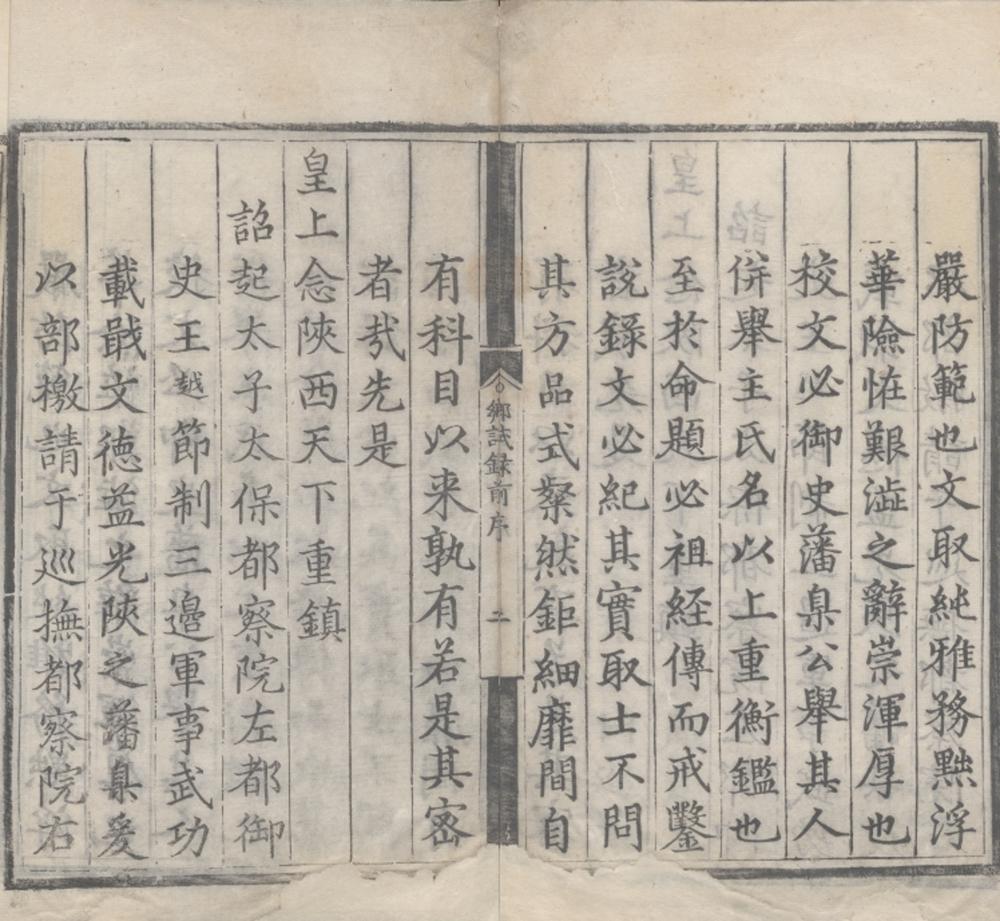 嚴防範也文取純雅務黜浮
華險恠艱澁之辭崇渾厚也
校文必御史藩臬公舉其人
併舉主氏名以上重衡鑑也
至於命題必祖経傳而戒鑿
說錄文必紀其實取士不問
其方品式粲然鉅細靡間自
鄉試録前序 二
有科目以来孰有若是其密
者㢤先是
皇上念陝西天下重鎮
詔起太子太保都察院左都御
史王越節制三邉軍事武功
載戢文德益光陝之藩臬爰
以部檄請于巡撫都察院右